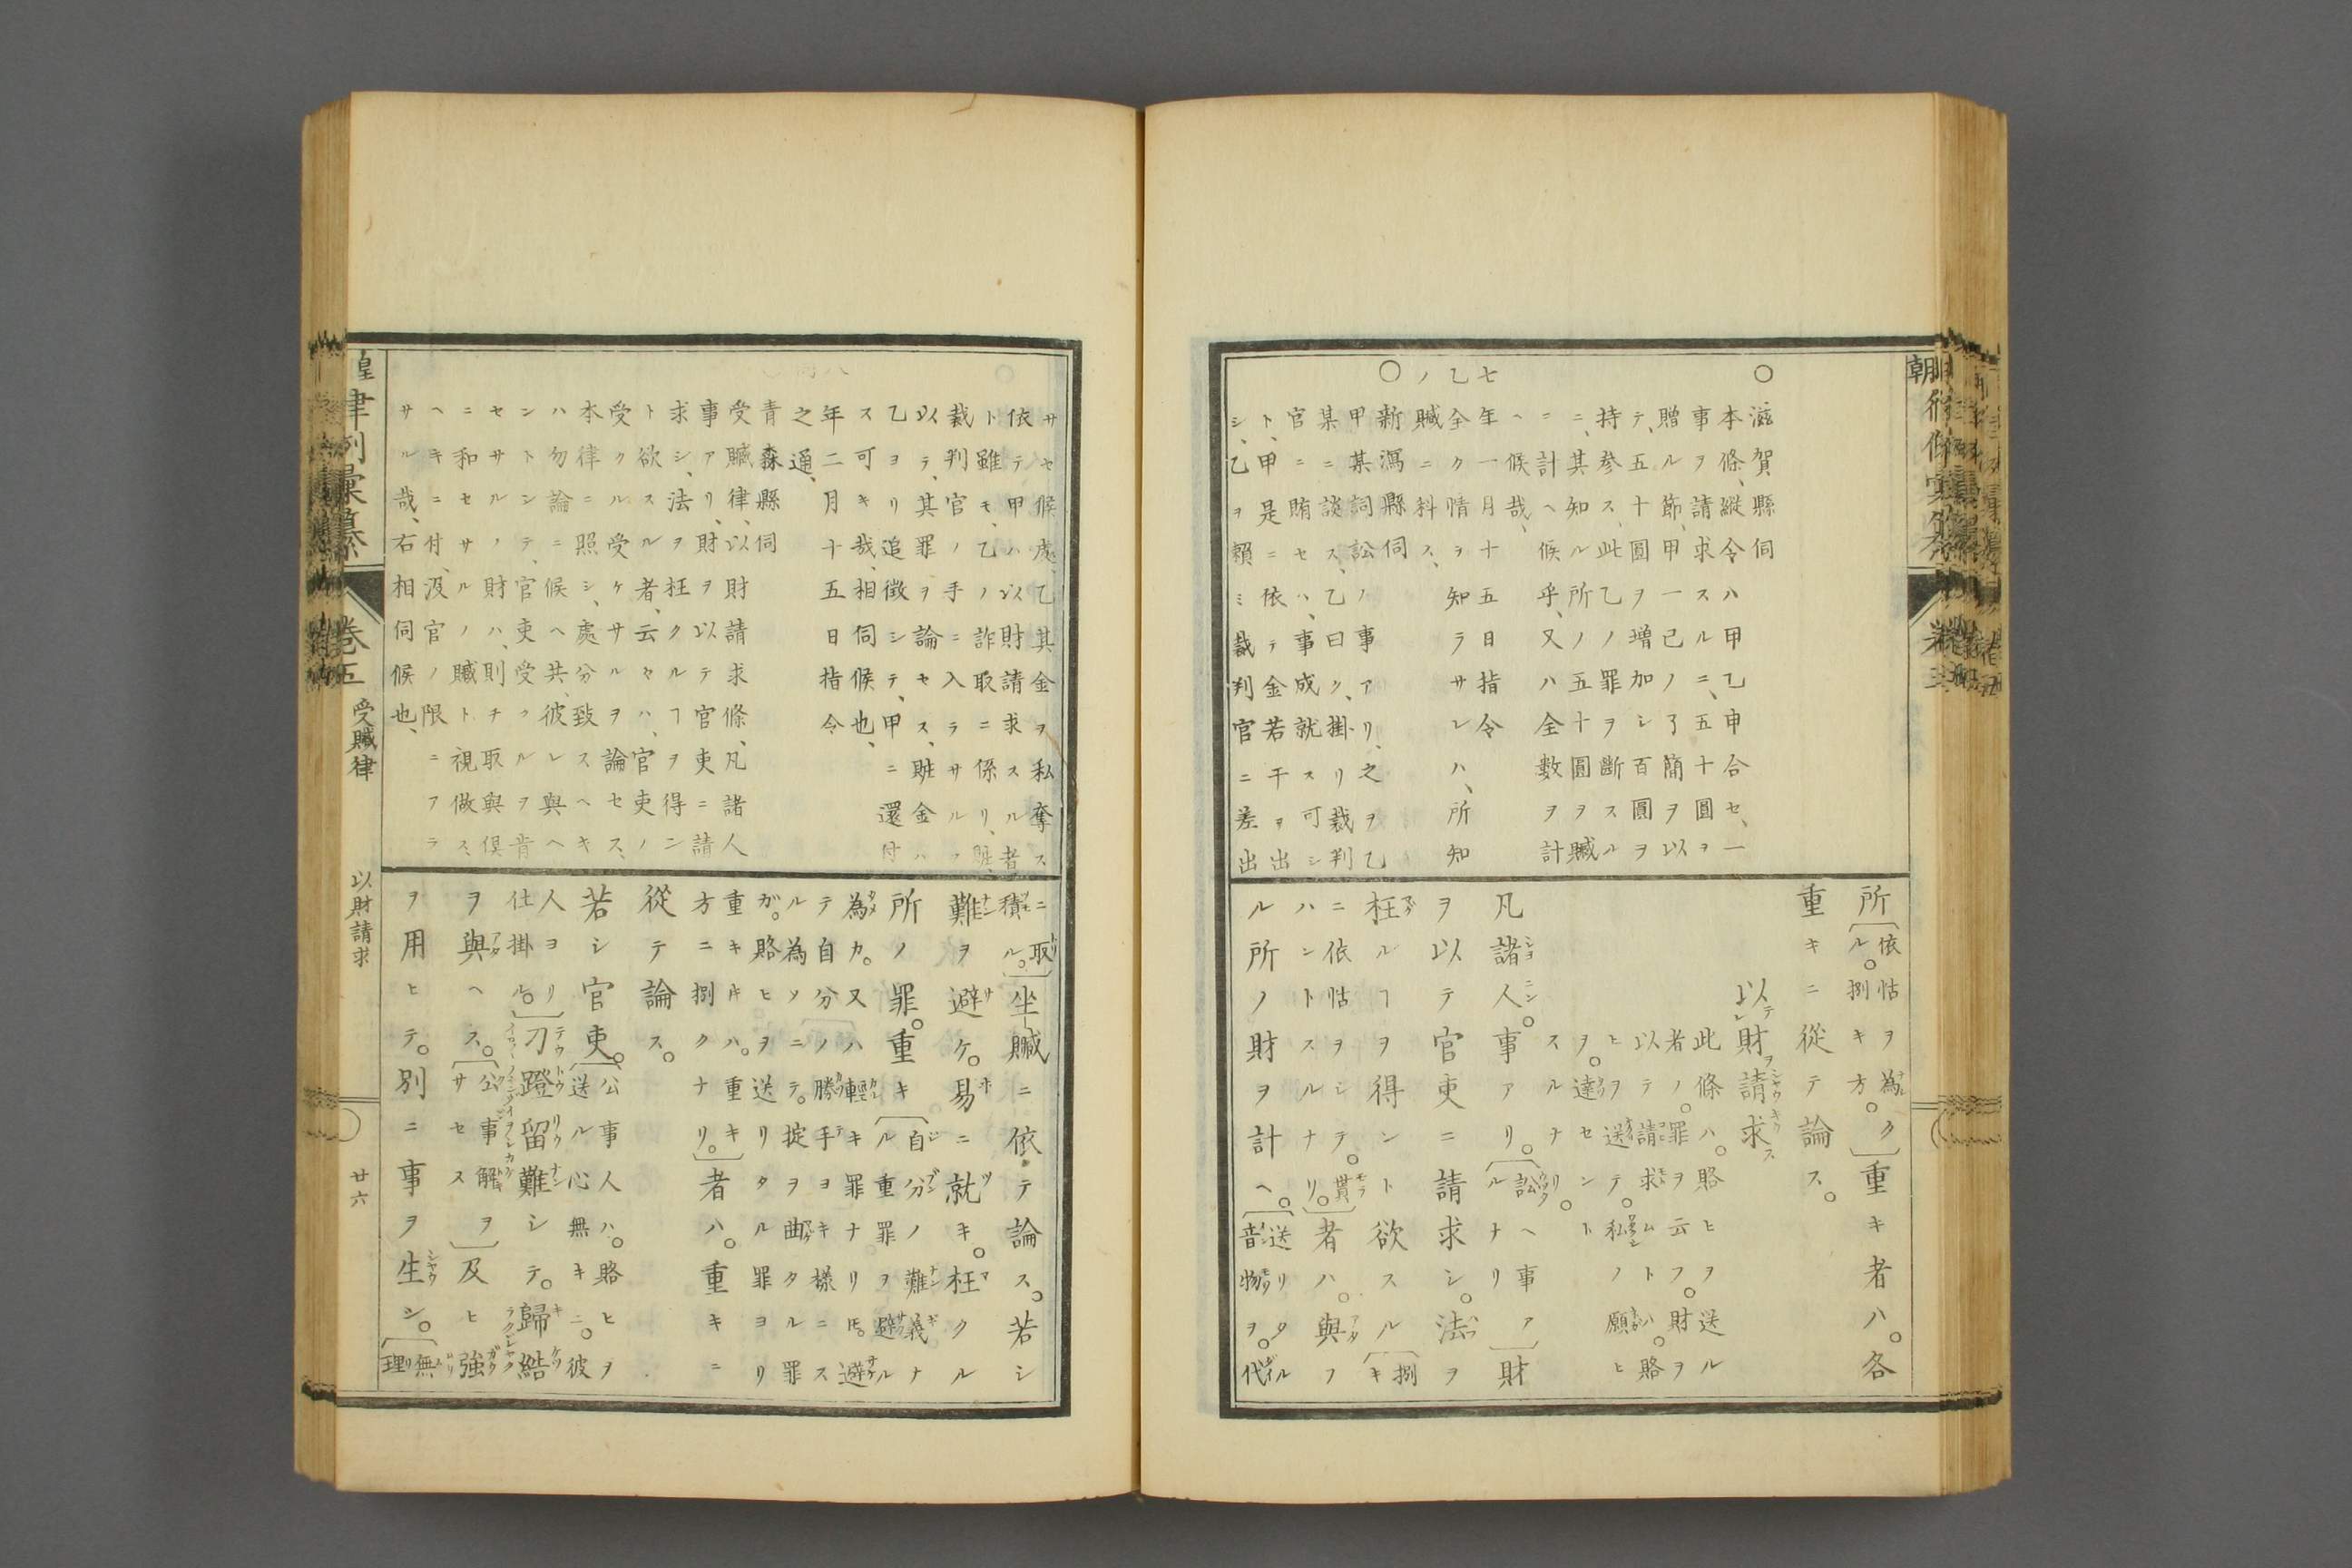 朝
○滋賀縣伺
本條、縱令ハ甲乙申合セ、一
事ヲ請求スルニ、五十圓ヲ
贈ル節、甲一己ノ了簡ヲ以
テ、五十圓ヲ増加シ百圓ヲ
持参ス、此乙ノ罪ヲ斷スル
ニ、其知ル所ノ五十圓ヲ贓
ニ計ヘ候乎、又ハ全數ヲ計
ヘ候哉、
七年一月十五日指令
乙全ク情ヲ知ラサレハ、所知
ノ贓ニ科ス、
○新潟縣伺
甲某詞訟ノ事アリ、之ヲ乙
某ニ談ス、乙曰ク、掛リ裁判
官ニ賄セハ、事成就ス可シ
ト、甲是ニ依テ金若干ヲ出
シ、乙ヲ頼ミ裁判官ニ差出
所〔依怙ヲ為ル。捌キ方。〕重キ者ハ。各
重キニ從テ論ス。
以財請求
此條ハ。賂ヒヲ送ル
者ノ。罪ヲ云フ。財ヲ
以テ請求ムトハ。賂
ヒヲ送テ。私ノ願ヒ
ヲ。達セント
スルナリ。
凡諸人。事アリ。〔訟ヘ事アルナリ〕財
ヲ以テ官吏ニ請求シ。法ヲ
枉ルヿヲ得ント欲スル〔捌キ
ニ依怙ヲシテ。貰ハントスルナリ。〕者ハ。與フ
ル所ノ財ヲ計ヘ。〔送リタル音物ヲ。代
サセ候處、乙其金ヲ私奪ス
依テ甲ハ以財請求スル者
ト雖モ、乙ノ詐取ニ係リ、賍
裁判官ノ手ニ入ラサルヲ
以テ、其罪ヲ論セス、賍金ハ
乙ヨリ追徴シテ、甲ニ還付
ス可キ哉、相伺候也、
年二月十五日指令
之通、
青森縣伺
受贓律、以財請求條、凡諸人
事アリ、財ヲ以テ官吏ニ請
求シ、法ヲ枉クルヿヲ得ン
ト欲スル者、云々ハ、官吏ノ
受クル受ケサルヲ論セス、
本律ニ照シ、處分致スヘキ
ハ勿論ニ候ヘ共、彼レ與ヘ
ントンテ、官吏受クルヲ肯
セサルノ財ハ、則チ取與倶
ニ和セサルノ贓ト視做ス、
ヘキニ付、沒官ノ限ニアラ
サル哉、右相伺候也、
ニ取積ル。〕坐贓ニ依テ論ス。若シ
難ヲ避ケ。易ニ就キ。枉クル
所ノ罪。重キ〔自分ノ難義ナル重罪ヲ避ル
為カ。又ハ輕キ罪ナリ𪜈。避
テ自分ノ勝手ヨキ様ニス
ル為ソニテ。掟ヲ曲タル罪
ガ。賂ヒヲ送リタル罪ヨリ
重キ𪜈ハ。重キ方ニ捌クナリ。〕者ハ。重キニ
從テ論ス。
若シ官吏。〔公事人ハ。賂ヒヲ送ル心無キニ。彼
人ヨリ仕掛ル。〕刁蹬留難シテ。歸結
ヲ與ヘス。〔公事解ヲサセス〕及ヒ強
ヲ用ヒテ。別ニ事ヲ生シ。〔無理
皇 律例彙纂 卷五 受贓律 以財請求 廿六